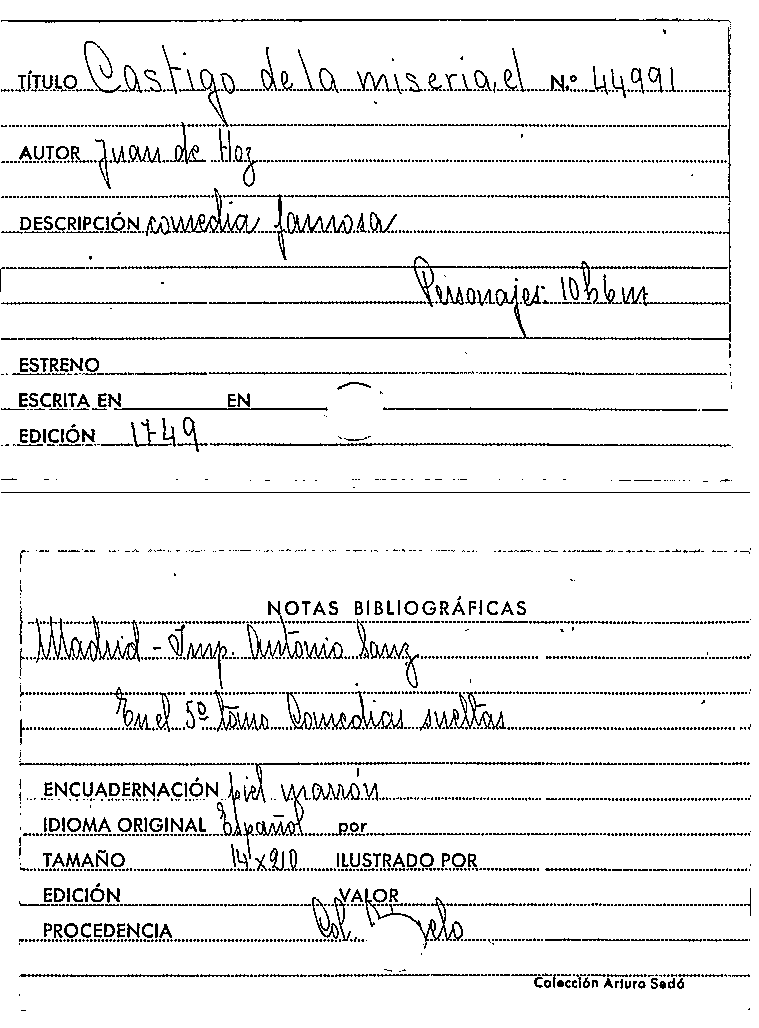 TÍTULO Castigo de la miseria, el N.º 44991
AUTOR Juan de Hoz
DESCRIPCIÓN comedia famosa
Personajes: 10h 6m
ESTRENO
ESCRITA EN EN
EDICIÓN 1749
NOTAS BIBLIOGRÁFICAS
Madrid - Imp. Antonio Sanz
En el 5º tomo Comedias sueltas
ENCUADERNACIÓN piel marrón
IDIOMA ORIGINAL Español por
TAMAÑO ILUSTRADO POR
EDICIÓN VALOR
PROCEDENCIA Col.
Colección Arturo Sedó